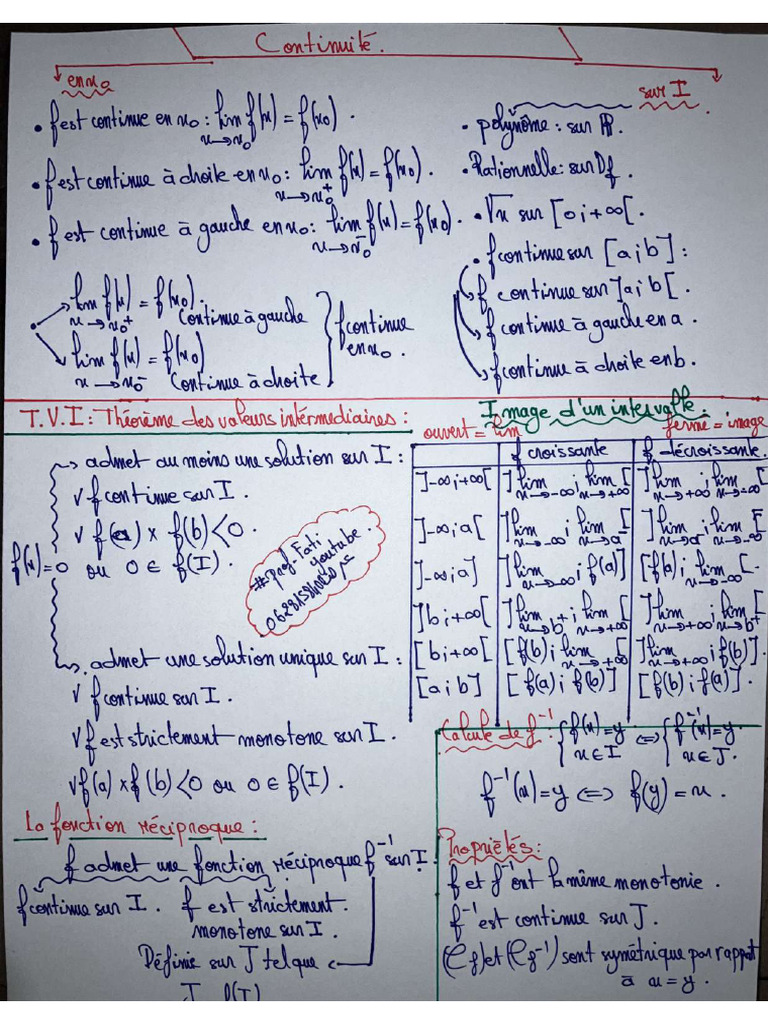 Continuité.
en x₀
• f est continue en x₀ : lim f(x) = f(x₀).
x→x₀
• f est continue à droite en x₀ : lim f(x) = f(x₀).
x→x₀⁺
• f est continue à gauche en x₀ : lim f(x) = f(x₀).
x→x₀⁻
lim f(x) = f(x₀).
x→x₀⁺ continue à gauche
lim f(x) = f(x₀)
x→x₀⁻ continue à droite
f continue
en x₀.
sur I.
• polynôme : sur ℝ.
• Rationnelle : sur Df.
• √x sur [0;+∞[.
• f continue sur [a;b] :
f continue sur ]a;b[.
f continue à gauche en a.
f continue à droite en b.
T.V.I : Théorème des valeurs intérmediaires :
f(x)=0
admet au moins une solution sur I :
√ f continue sur I.
√ f(a) × f(b) < 0.
ou 0 ∈ f(I).
#prof. Fati
youtube.
admet une solution unique sur I :
√ f continue sur I.
√ f est strictement monotone sur I.
√ f(a) × f(b) < 0 ou 0 ∈ f(I).
Image d'un intervalle.
ouvert = lim fermé = image
f croissante f décroissante.
]-∞;+∞[ ]lim ; lim [ ]lim ; lim [
x→-∞ x→+∞ x→+∞ x→-∞
]-∞;a[ ]lim ; lim [ ]lim ; lim [
x→-∞ x→a⁻ x→a⁻ x→-∞
]-∞;a] ]lim ; f(a)] [f(a) ; lim [.
x→-∞ x→-∞
]b;+∞[ ]lim ; lim [ ]lim ; lim [
x→b⁺ x→+∞ x→+∞ x→b⁺
[b;+∞[ [f(b) ; lim [ ]lim ; f(b)].
x→+∞ x→+∞
[a;b] [f(a) ; f(b)]. [f(b) ; f(a)].
Calcule de f⁻¹ : { f(x)=y ⇔ { f⁻¹(x)=y.
x∈I x∈J.
f⁻¹(x)=y ⇔ f(y)=x.
La fonction réciproque :
f admet une fonction réciproque f⁻¹ sur I.
f continue sur I. f est strictement.
monotone sur I.
Définie sur J tel que
Propriétés :
f et f⁻¹ ont la même monotonie.
f⁻¹ est continue sur J.
(Cf) et (Cf⁻¹) sont symétrique par rapport
à x=y.